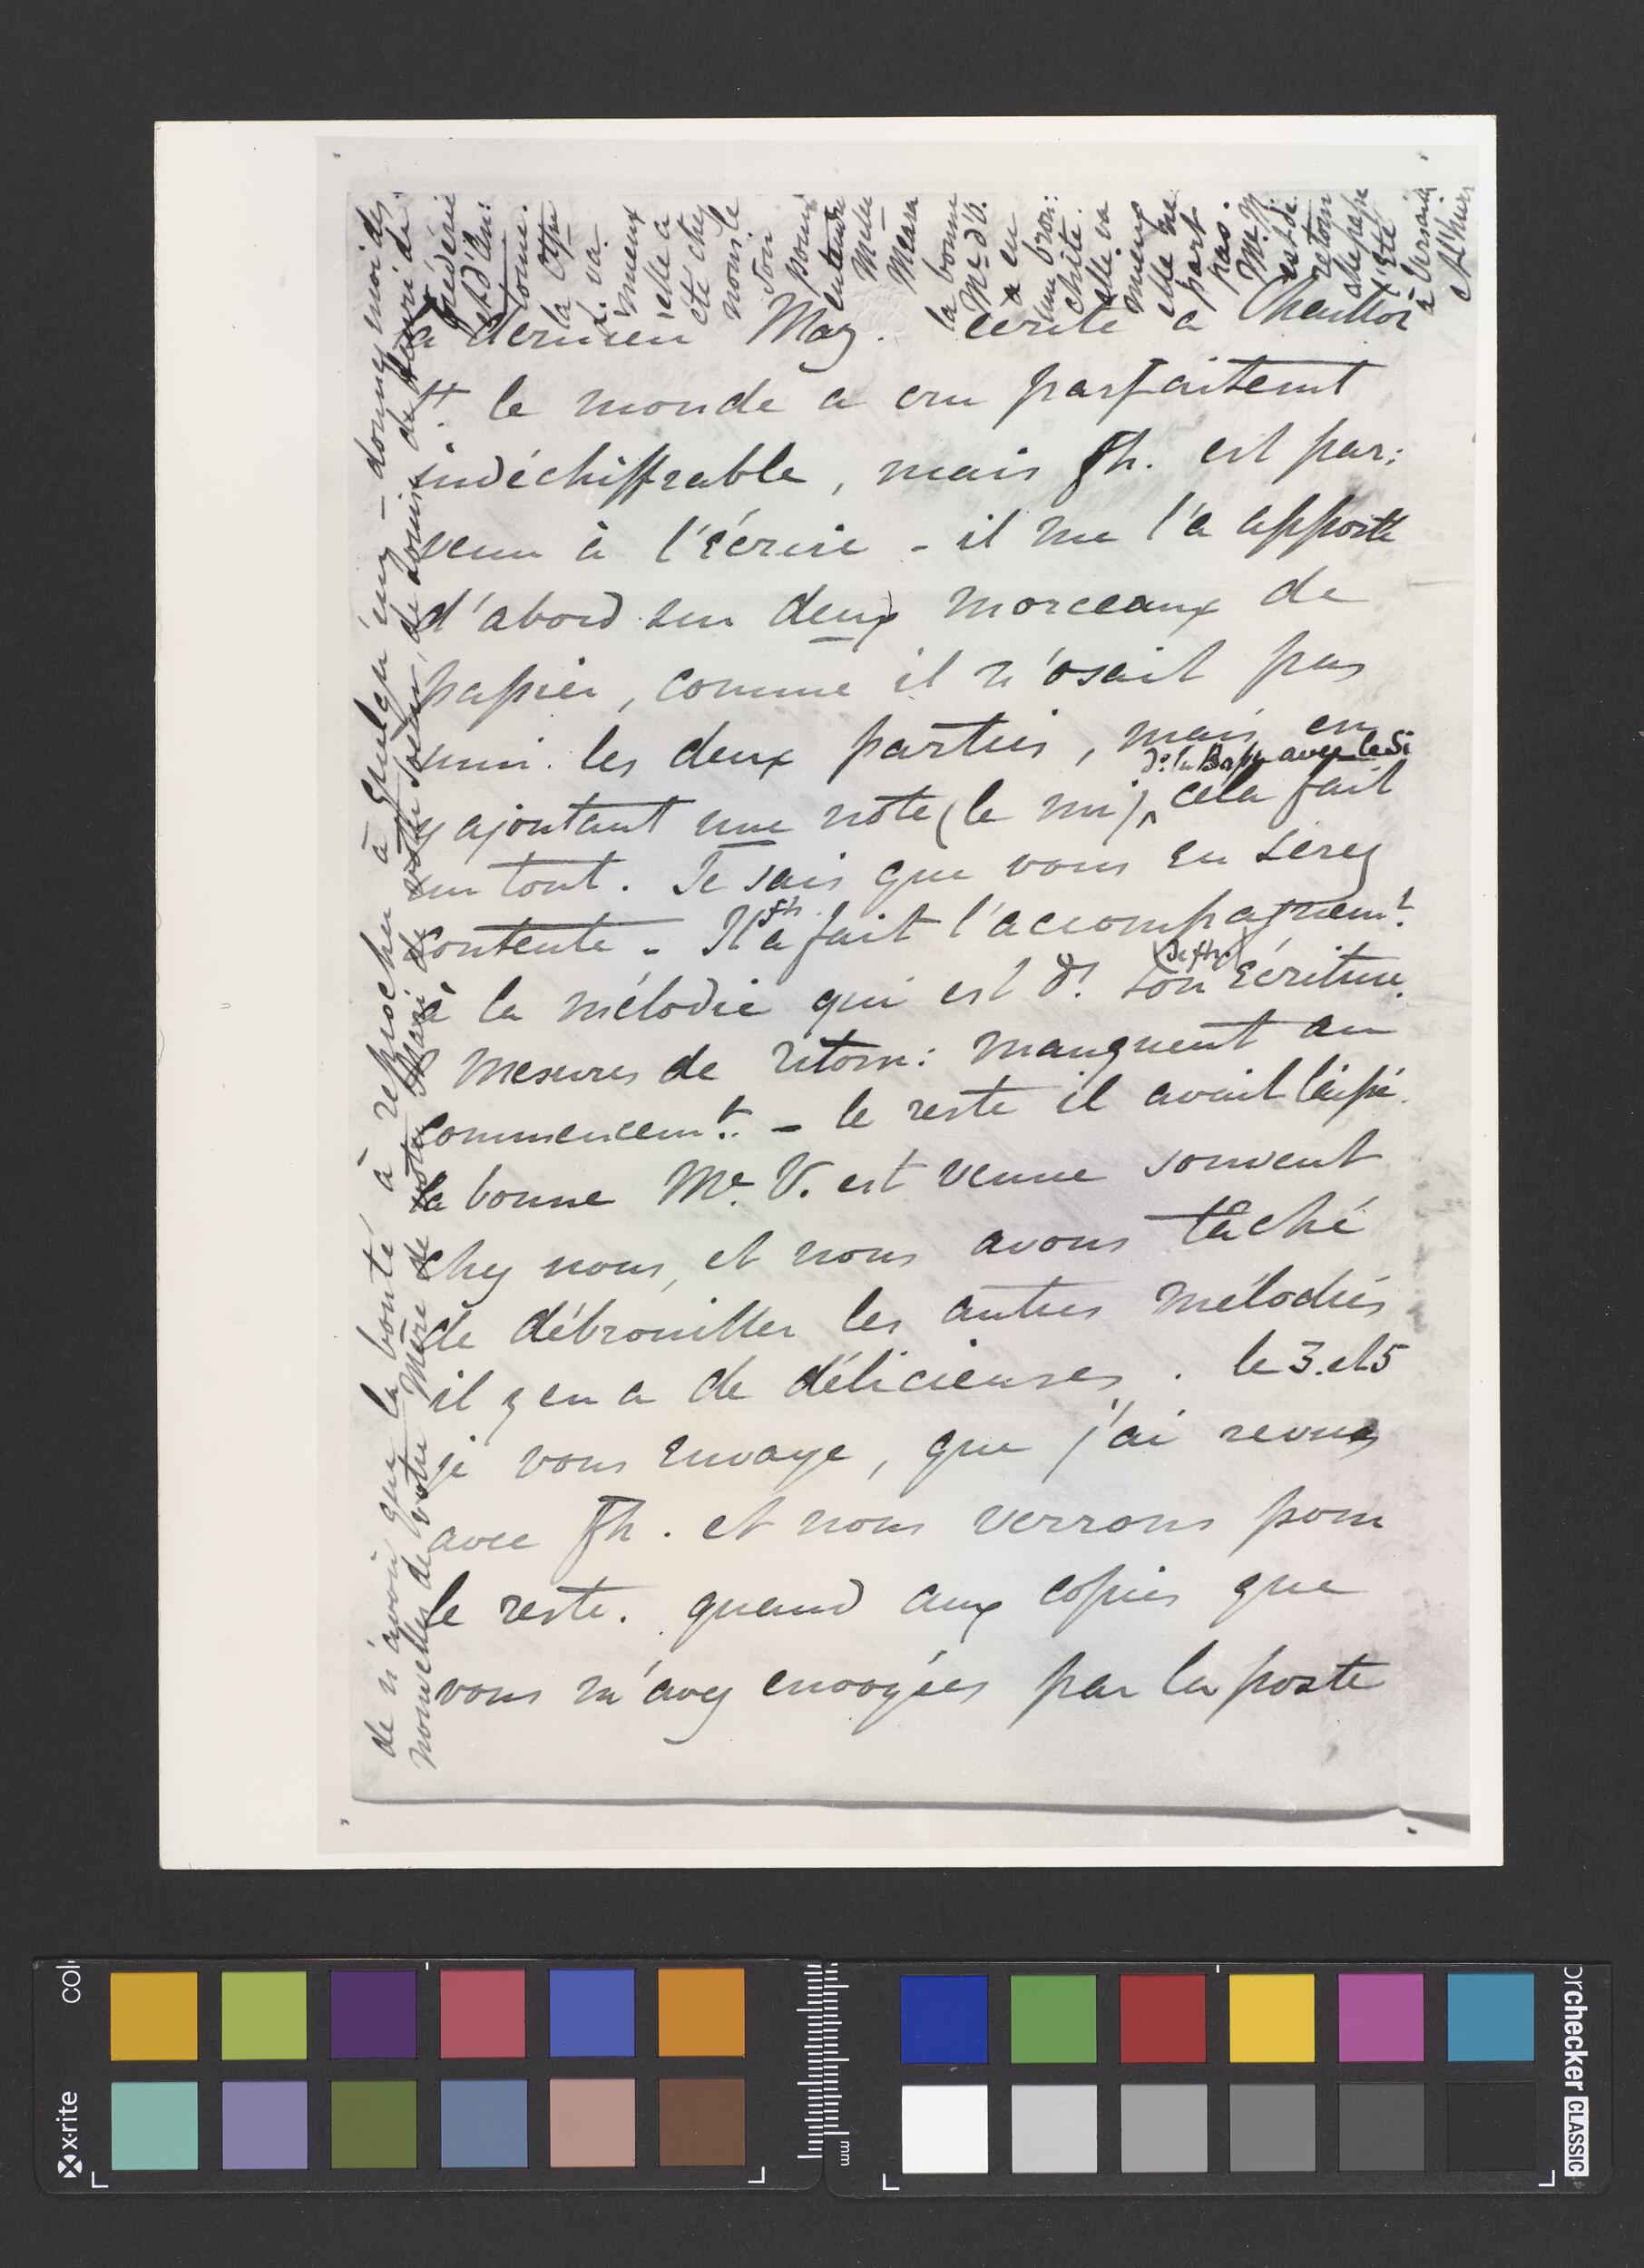 à dernièr Maz. écrite à Chaillot
tt le monde a cru parfaitemt
indéchiffrable, mais Fh. est par:
venu à l'écrire - il me l'a apporté
d'abord sur deux morceaux de
papier, comme il n'osait pas
unir les deux parties, mais en
ds. la Basse avec le Si
y ajoutant une note (le mi), cela fait
un tout. Je sais que vous en serez
contente - Il a fait l'accompagnemt.
Fh.
à la mélodie qui est ds. son écriture.
(de Fh.)
8 mesures de ritorn: manquent au
commencemt. - le reste il avait laissé.
la bonne Me. V. est venue souvent
chez nous, et nous avons tâché
de débrouiller les autres mélodies
il y en a de délicieuses. le 3. et 5
je vous envoye, que j'ai revues
avec Fh. et nous verrons pour
le reste. quand aux copies que
vous m'avez envoyées par la poste
de n'avoir que la bonté à reprocher à quelqu'un - donnez moi des
nouvelles de votre Mère de votre Mari de votre Soeur, de Louise de
Frédéric
et d'An:
toine.
la
va
mieux
elle a
été chez
nous le
Soir
pour
entendre
Melle
Meara
la bonne
Me d'O.
a eu
une bron:
chite.
elle va
mieux
elle ne
part
pas.
Me. M.
est de
retour
l'été
à Versail